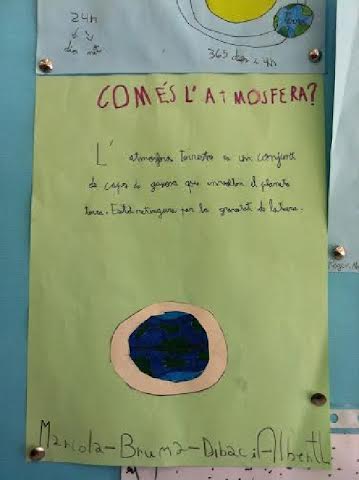 24h
dia nit
Terra
365 dies i 4h
COM ÉS L'ATMOSFERA?
L' atmosfera terrestre es un conjunt
de capes de gasos que envolten el planeta
terra. Està retinguda per la gravetat de la terra.
Mariola-Bruma-Dibac i Albert L